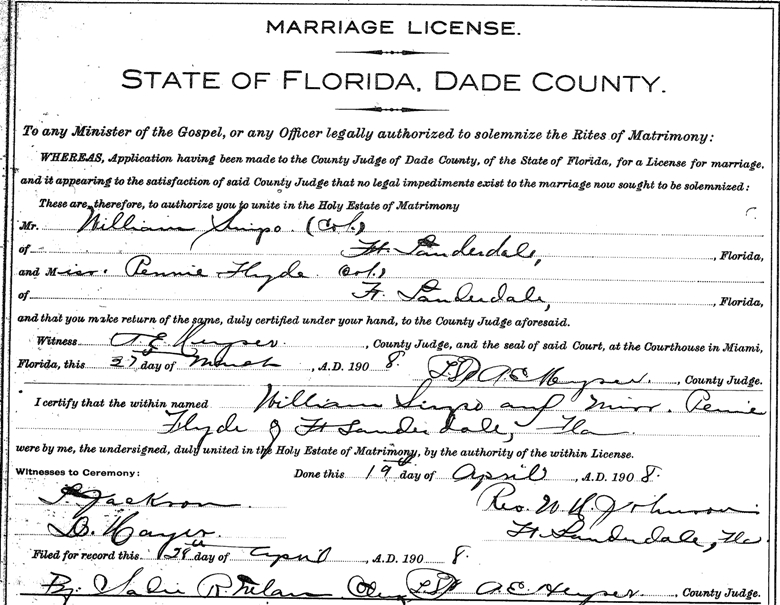 MARRIAGE LICENSE.
STATE OF FLORIDA, DADE COUNTY.
To any Minister of the Gospel, or any Officer legally authorized to solemnize the Rites of Matrimony:
WHEREAS, Application having been made to the County Judge of Dade County, of the State of Florida, for a License for marriage,
and it appearing to the satisfaction of said County Judge that no legal impediments exist to the marriage now sought to be solemnized:
These are, therefore, to authorize you to unite in the Holy Estate of Matrimony
Mr. William (Col.)
of Ft. Lauderdale, , Florida,
and Miss. Pennie Hyde (Col.)
of Ft. Lauderdale, , Florida,
and that you make return of the same, duly certified under your hand, to the County Judge aforesaid.
Witness A. E. Heyser. , County Judge, and the seal of said Court, at the Courthouse in Miami,
Florida, this 27 day of March , A.D. 190 8. A. E. Heyser. , County Judge.
I certify that the within named William and Miss. Pennie
Hyde of Ft Lauderdale, Fla
were by me, the undersigned, duly united in the Holy Estate of Matrimony, by the authority of the within License.
Witnesses to Ceremony: Done this 19th day of April , A.D. 190 8.
Jackson Rev. W. H. Johnson
Ft. Lauderdale, Fla
Filed for record this 28th day of April , A.D. 190 8.
By: A. E. Heyser , County Judge.